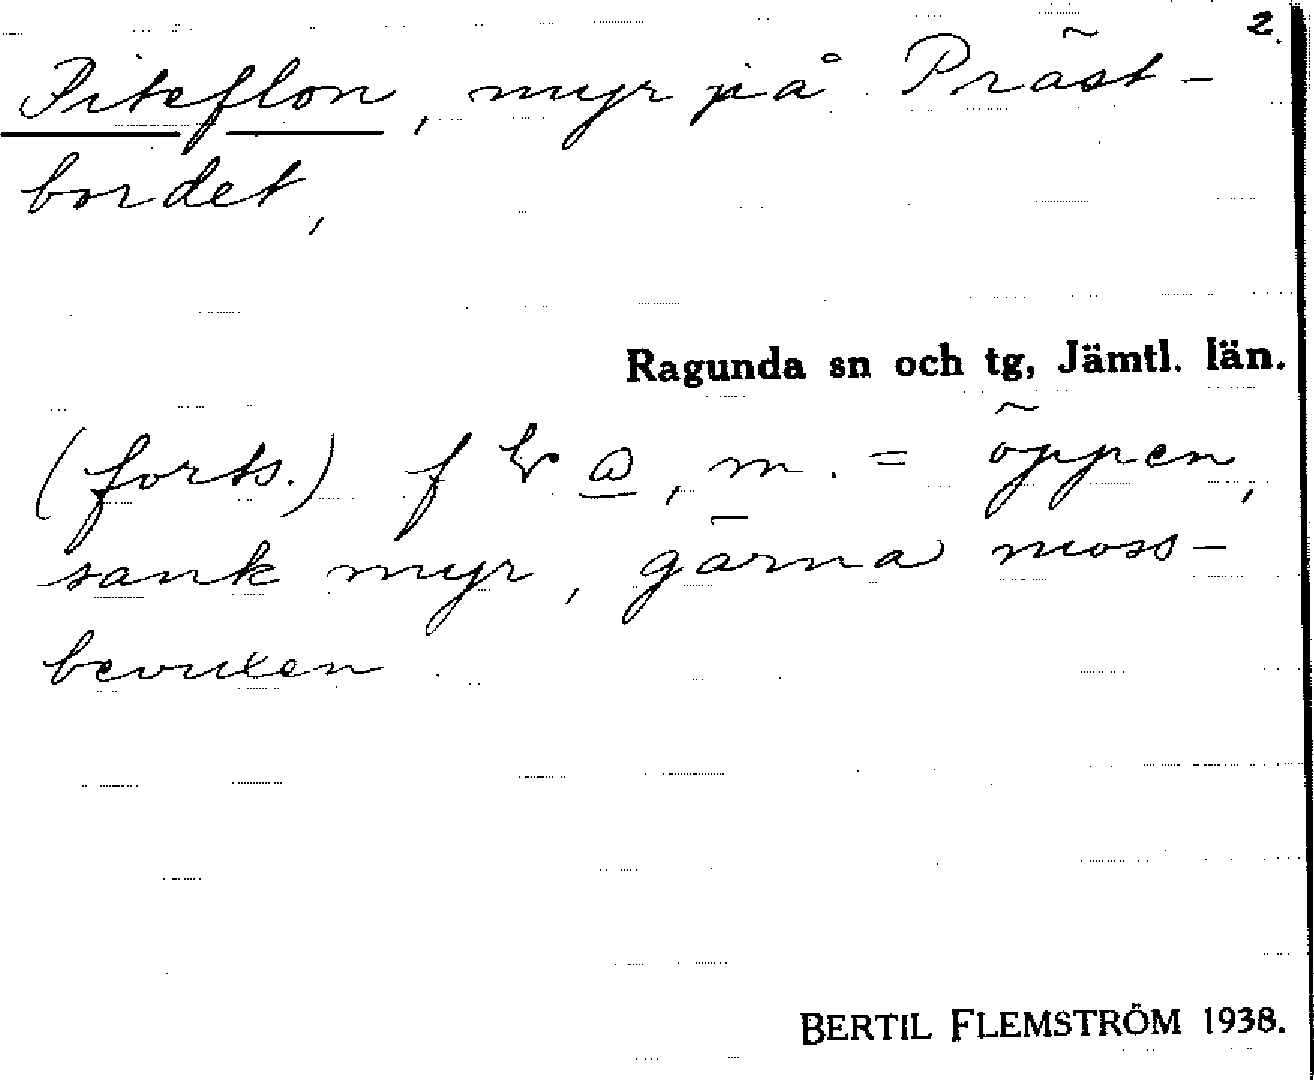 2.
Piteflon, myr på Präst-
bordet,
Ragunda sn och tg, Jämtl. län.
(forts.) f , m. = öppen,
sank myr, gärna moss-
bevuxen.
BERTIL FLEMSTRÖM 1938.